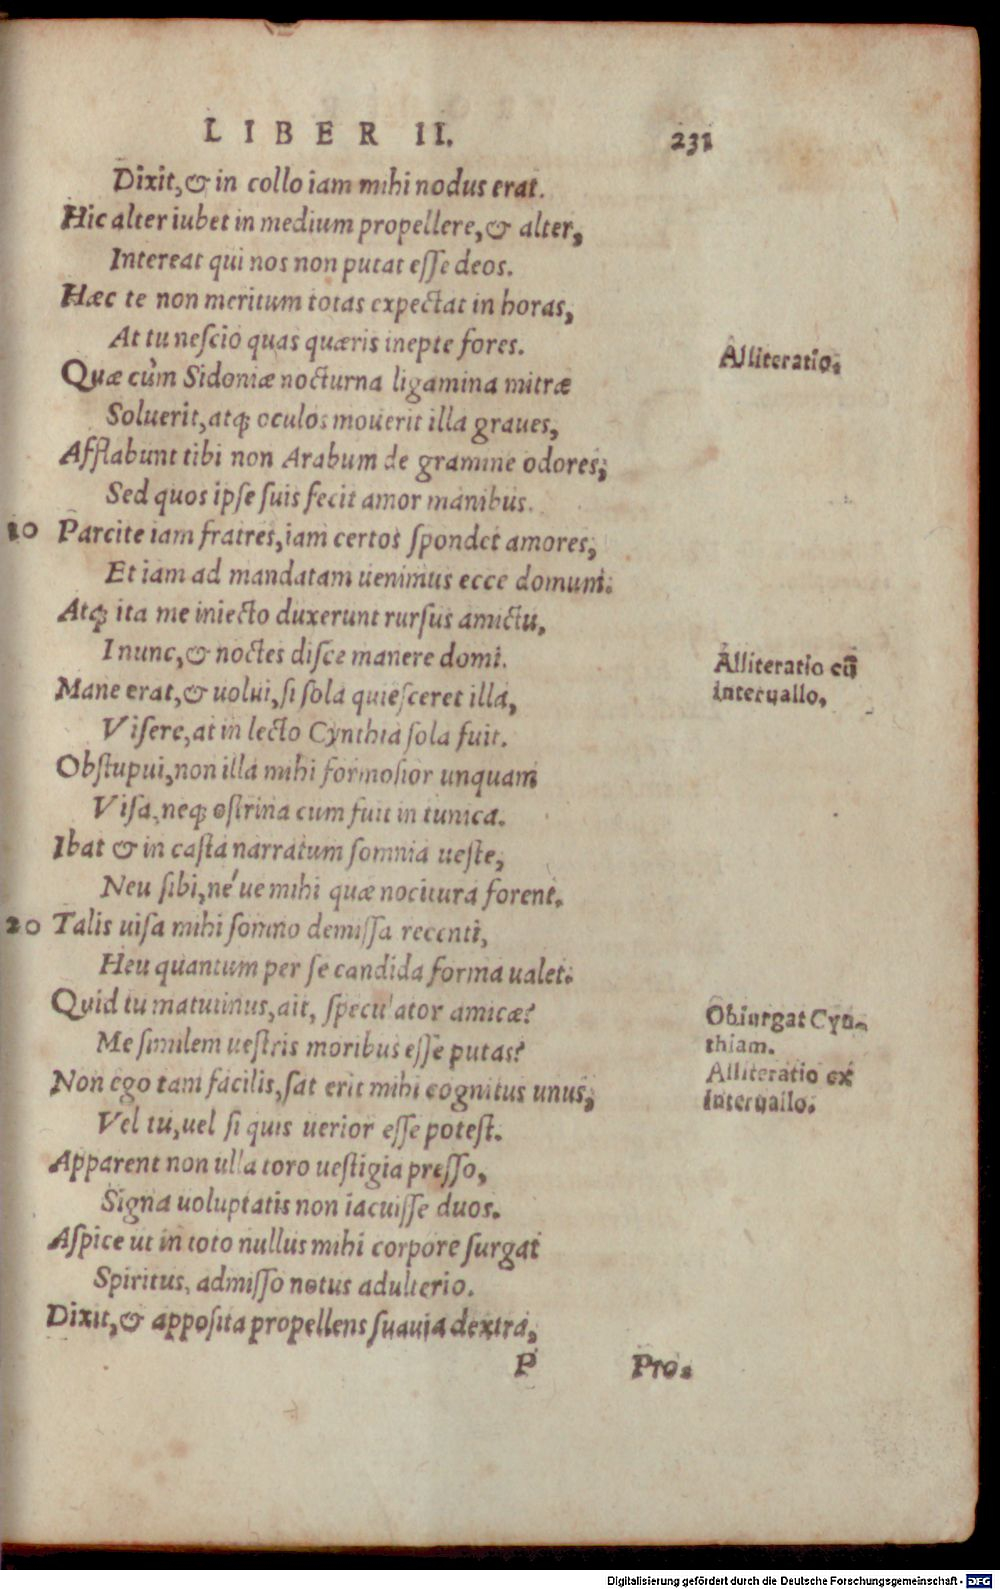 LIBER II. 231
Dixit, & in collo iam mihi nodus erat.
Hic alter iubet in medium propellere, & alter,
Intereat qui nos non putat esse deos.
Hæc te non meritum totas expectat in horas,
At tu nescio quas quæris inepte fores.
Alliteratio.
Quæ cùm Sidoniæ nocturna ligamina mitræ
Soluerit, atq; oculos mouerit illa graues,
Afflabunt tibi non Arabum de gramine odores,
Sed quos ipse suis fecit amor manibus.
10 Parcite iam fratres, iam certos spondet amores,
Et iam ad mandatam uenimus ecce domum.
Atq; ita me iniecto duxerunt rursus amictu,
I nunc, & noctes disce manere domi.
Alliteratio cū
interuallo.
Mane erat, & uolui, si sola quiesceret illa,
Visere, at in lecto Cynthia sola fuit.
Obstupui, non illa mihi formosior unquam
Visa, neq; ostrina cum fuit in tunica.
Ibat & in casta narratum somnia ueste,
Neu sibi, né ue mihi quæ nocitura forent.
20 Talis uisa mihi somno demissa recenti,
Heu quantum per se candida forma ualet.
Quid tu matutinus, ait, speculator amicæ?
Me similem uestris moribus esse putas?
Obiurgat Cyn-
thiam.
Alliteratio ex
interuallo.
Non ego tam facilis, sat erit mihi cognitus unus,
Vel tu, uel si quis uerior esse potest.
Apparent non ulla toro uestigia presso,
Signa uoluptatis non iacuisse duos.
Aspice ut in toto nullus mihi corpore surgat
Spiritus, admisso notus adulterio.
Dixit, & apposita propellens suauia dextra,
P Pro-
Digitalisierung gefördert durch die Deutsche Forschungsgemeinschaft - DFG